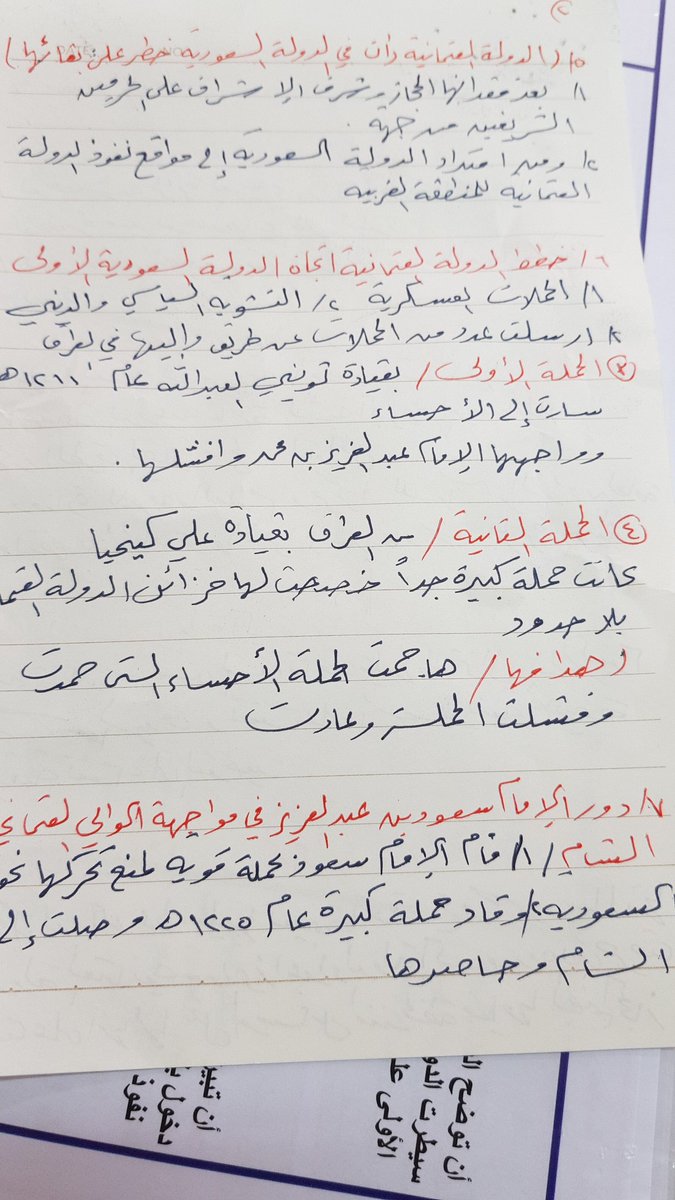 ٢
٥/ (الدولة العثمانية رأت في الدولة السعودية خطر على بقائها)
١/ بعد فقدانها الحجاز وشرف الإشراف على الحرمين
الشريفين من جهه .
٢/ ومن امتداد الدولة السعودية إلى مواقع نفوذ الدولة
العثمانيه للمنطقة الغربيه
٦/ خطط الدولة العثمانية اتجاه الدولة السعودية الأولى
١/ الحملات العسكرية ٢/ التشويه السياسي والديني
٢/ ارسلت عدد من الحملات عن طريق واليها في العراق
٣ الحملة الأولى / بقيادة ثويني العبدالله عام ١٢١١ هـ
سارت إلى الأحساء
وواجهها الإمام عبدالعزيز بن محمد وافشلها .
٤ الحملة الثانية / من العراق بقيادة علي كيخيا
كانت حملة كبيرة جداً خصصت لها خزائن الدولة
بلا حدود
أهدافها / هاجمت الحملة الأحساء التي صمدت
وفشلت الحملة وعادت
٧/ دور الإمام سعود بن عبدالعزيز في مواجهة الوالي
الشام / ١/ قام الإمام سعود بحملة قويه لمنع تحركها نحو
السعوديه ٢/ وقاد حملة كبيرة عام ١٢٢٥ هـ وصلت إلى
الشام وحاصرها
أن توضح
سيطرت
الأولى
أن
دخول